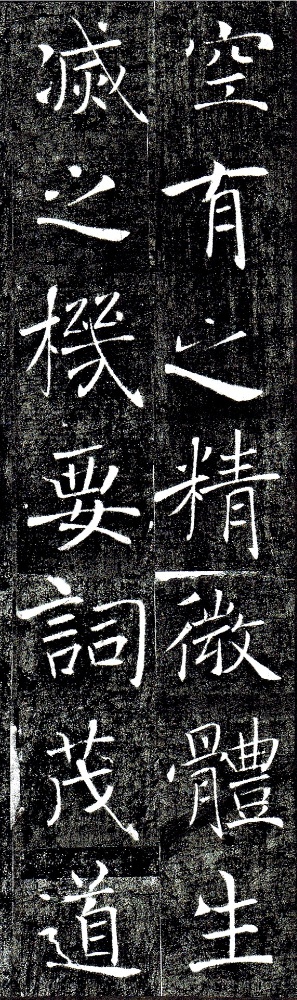 空有之精微體生
滅之機要詞茂道